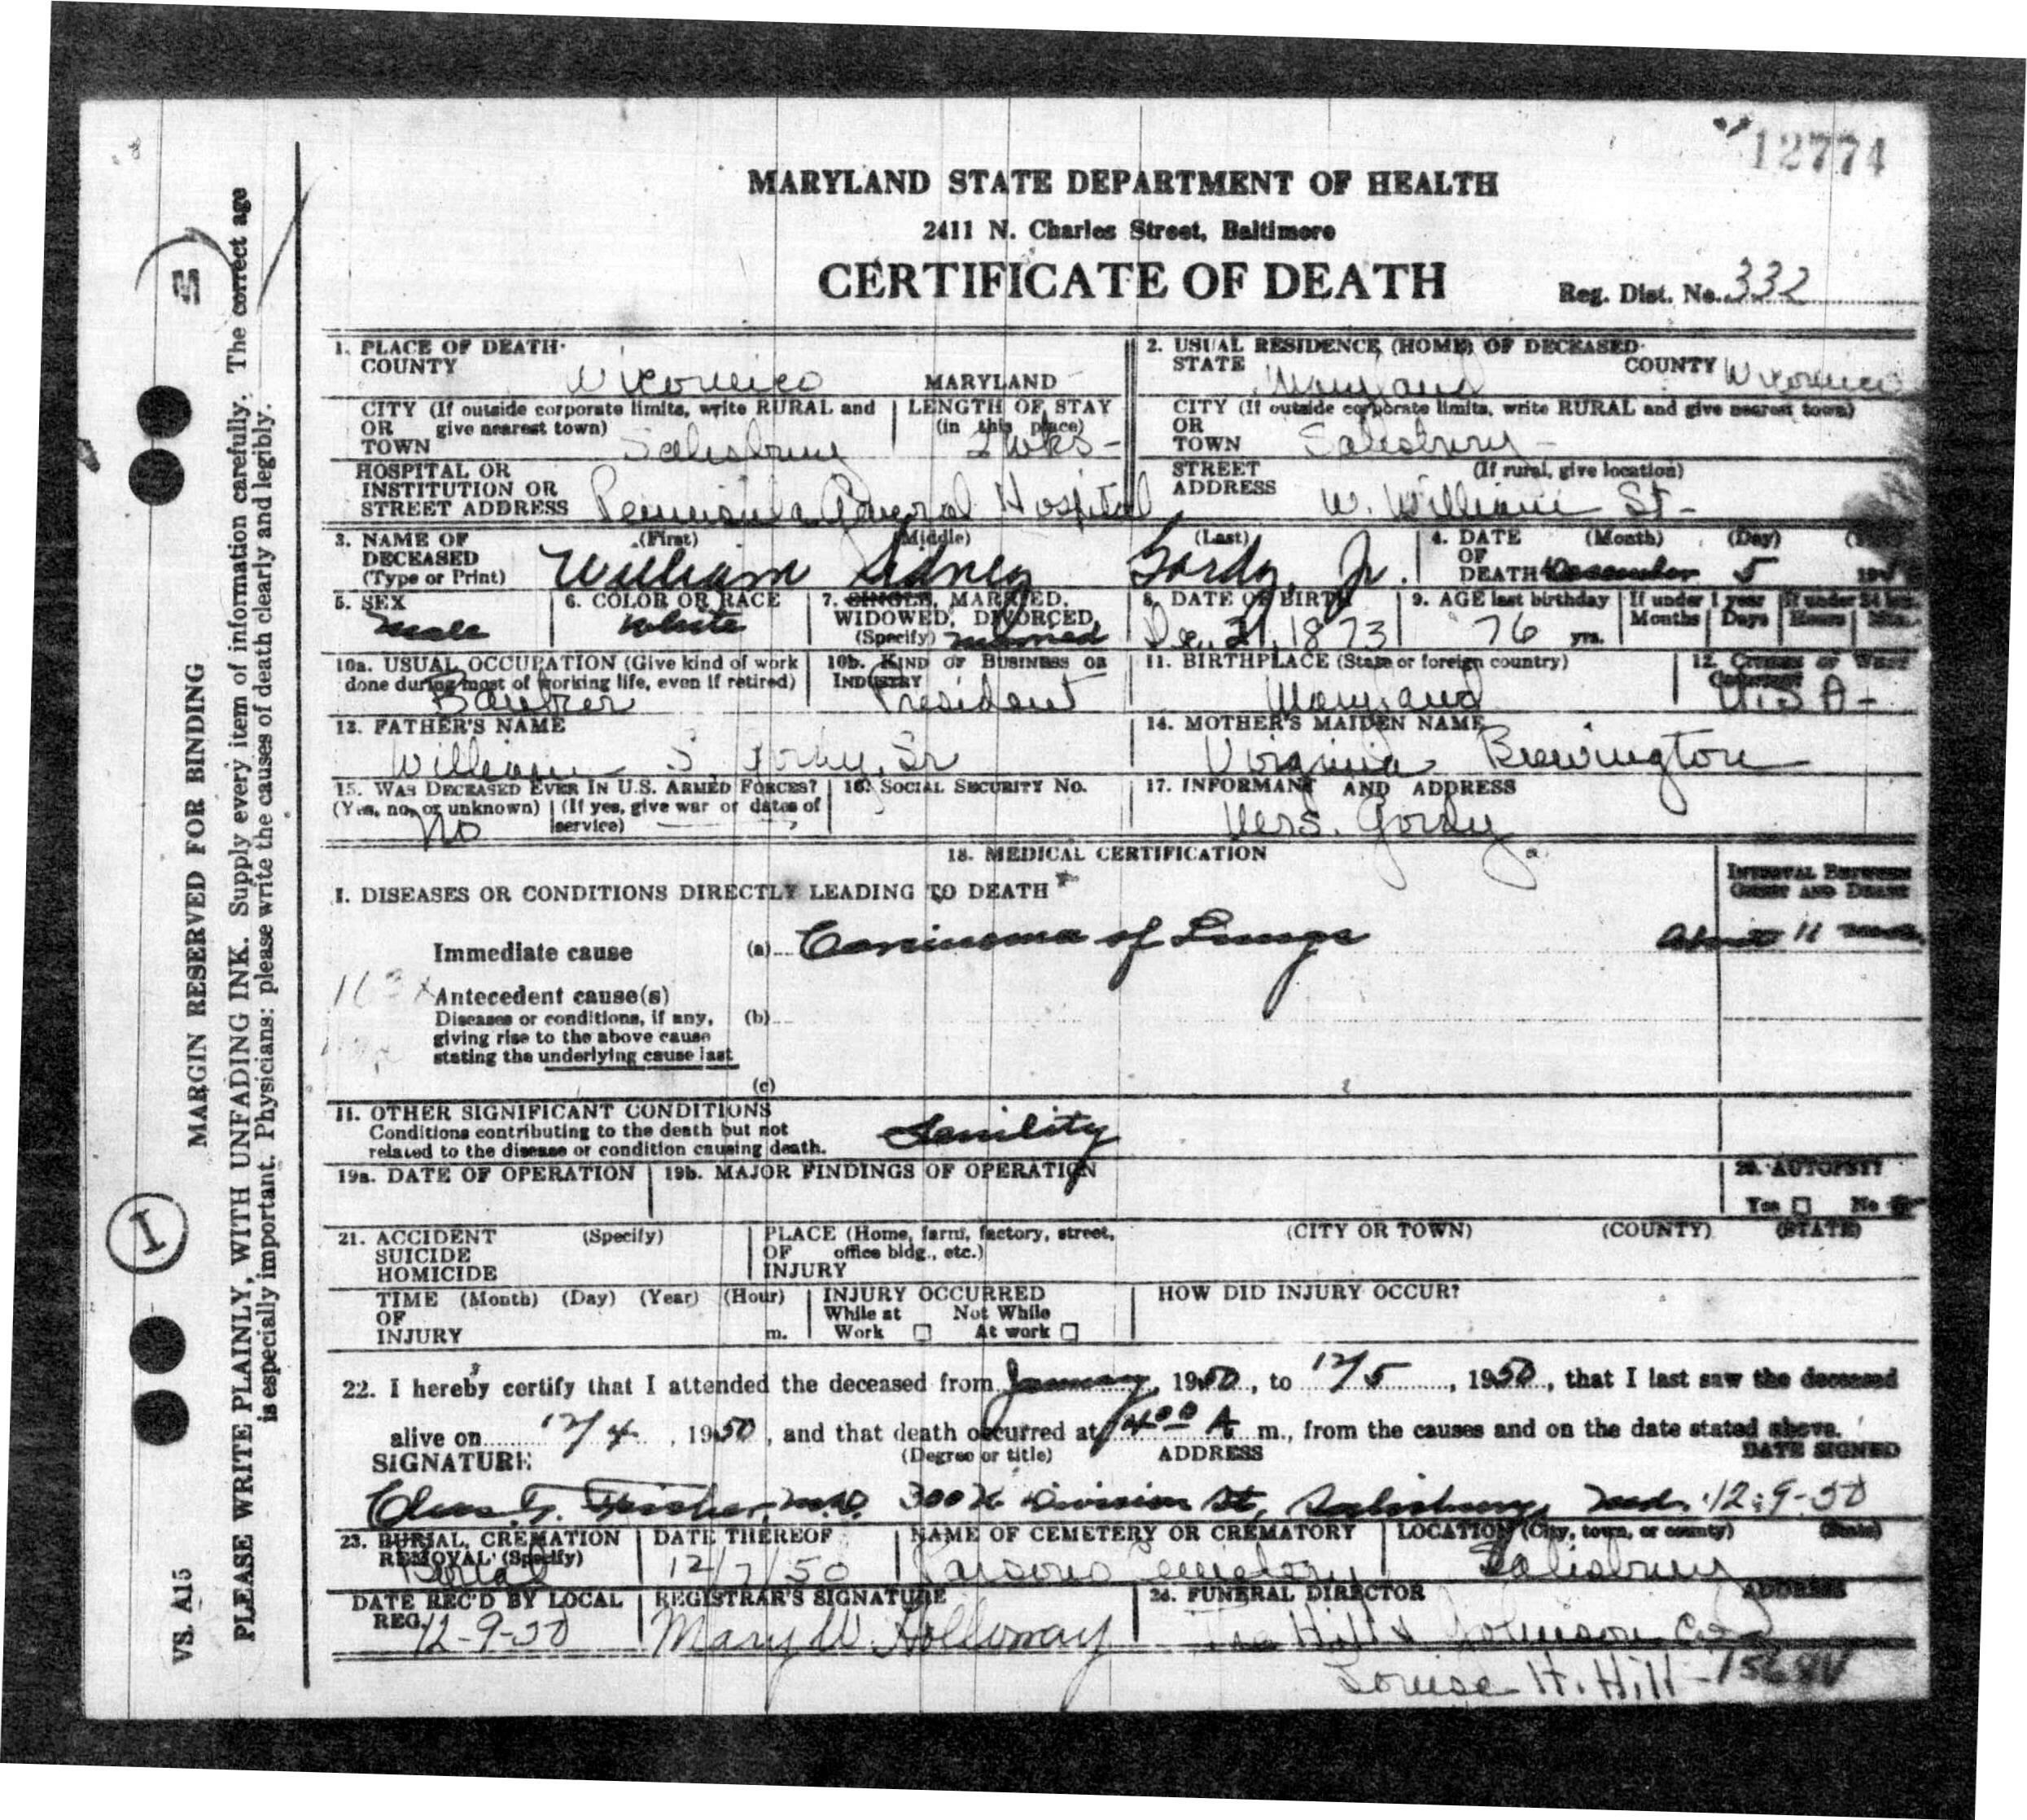 12774
MARYLAND STATE DEPARTMENT OF HEALTH
2411 N. Charles Street, Baltimore
CERTIFICATE OF DEATH
Reg. Dist. No. 332
MARGIN RESERVED FOR BINDING
PLEASE WRITE PLAINLY, WITH UNFADING INK. Supply every item of information carefully. The correct age
is especially important. Physicians: please write the causes of death clearly and legibly.
VS. A15
I
1. PLACE OF DEATH
COUNTY Wicomico MARYLAND
2. USUAL RESIDENCE (HOME) OF DECEASED
STATE Maryland COUNTY Wicomico
CITY (If outside corporate limits, write RURAL and
OR give nearest town)
TOWN Salisbury
LENGTH OF STAY
(in this place)
2 wks-
CITY (If outside corporate limits, write RURAL and give nearest town)
OR
TOWN Salisbury-
HOSPITAL OR
INSTITUTION OR
STREET ADDRESS Peninsula General Hospital
STREET (If rural, give location)
ADDRESS W. William St-
3. NAME OF (First) (Middle) (Last)
DECEASED
(Type or Print) William Sidney Gordy, Jr.
4. DATE (Month) (Day)
OF
DEATH December 5
5. SEX
Male
6. COLOR OR RACE
White
7. SINGLE, MARRIED,
WIDOWED, DIVORCED,
(Specify) Married
8. DATE OF BIRTH
1873
9. AGE last birthday
76 yrs.
If under 1 year
Months Days
If under 24 hrs.
Hours Min.
10a. USUAL OCCUPATION (Give kind of work
done during most of working life, even if retired)
Banker
10b. KIND OF BUSINESS OR
INDUSTRY
President
11. BIRTHPLACE (State or foreign country)
Maryland
12. CITIZEN OF WHAT
COUNTRY?
U.S A-
13. FATHER'S NAME
William S. Gordy, Sr
14. MOTHER'S MAIDEN NAME
Virginia Brewington
15. WAS DECEASED EVER IN U.S. ARMED FORCES?
(Yes, no, or unknown) (If yes, give war or dates of
service)
No
16. SOCIAL SECURITY NO.
17. INFORMANT AND ADDRESS
Mrs. Gordy
18. MEDICAL CERTIFICATION
INTERVAL BETWEEN
ONSET AND DEATH
I. DISEASES OR CONDITIONS DIRECTLY LEADING TO DEATH
Immediate cause (a) Carcinoma of Lungs About 11
163x
Antecedent cause(s)
Diseases or conditions, if any, (b)
giving rise to the above cause
stating the underlying cause last
(c)
II. OTHER SIGNIFICANT CONDITIONS
Conditions contributing to the death but not
related to the disease or condition causing death.
Senility
19a. DATE OF OPERATION
19b. MAJOR FINDINGS OF OPERATION
20. AUTOPSY?
Yes No
21. ACCIDENT (Specify)
SUICIDE
HOMICIDE
PLACE (Home, farm, factory, street,
OF office bldg., etc.)
INJURY
(CITY OR TOWN) (COUNTY) (STATE)
TIME (Month) (Day) (Year) (Hour)
OF
INJURY m.
INJURY OCCURRED
While at Not While
Work At work
HOW DID INJURY OCCUR?
22. I hereby certify that I attended the deceased from January, 1950, to 12/5, 1950, that I last saw the deceased
alive on 12/4, 1950, and that death occurred at 4:00 A m., from the causes and on the date stated above.
SIGNATURE (Degree or title) ADDRESS DATE SIGNED
M.D. 300 N. Division St, Salisbury, Md. 12-9-50
23. BURIAL, CREMATION
REMOVAL (Specify)
Burial
DATE THEREOF
12/7/50
NAME OF CEMETERY OR CREMATORY
Parsons Cemetery
LOCATION (City, town, or county) (State)
Salisbury
DATE REC'D BY LOCAL
REG. 12-9-50
REGISTRAR'S SIGNATURE
Mary W. Holloway
24. FUNERAL DIRECTOR ADDRESS
The Hill & Johnson Co
Louise H. Hill-